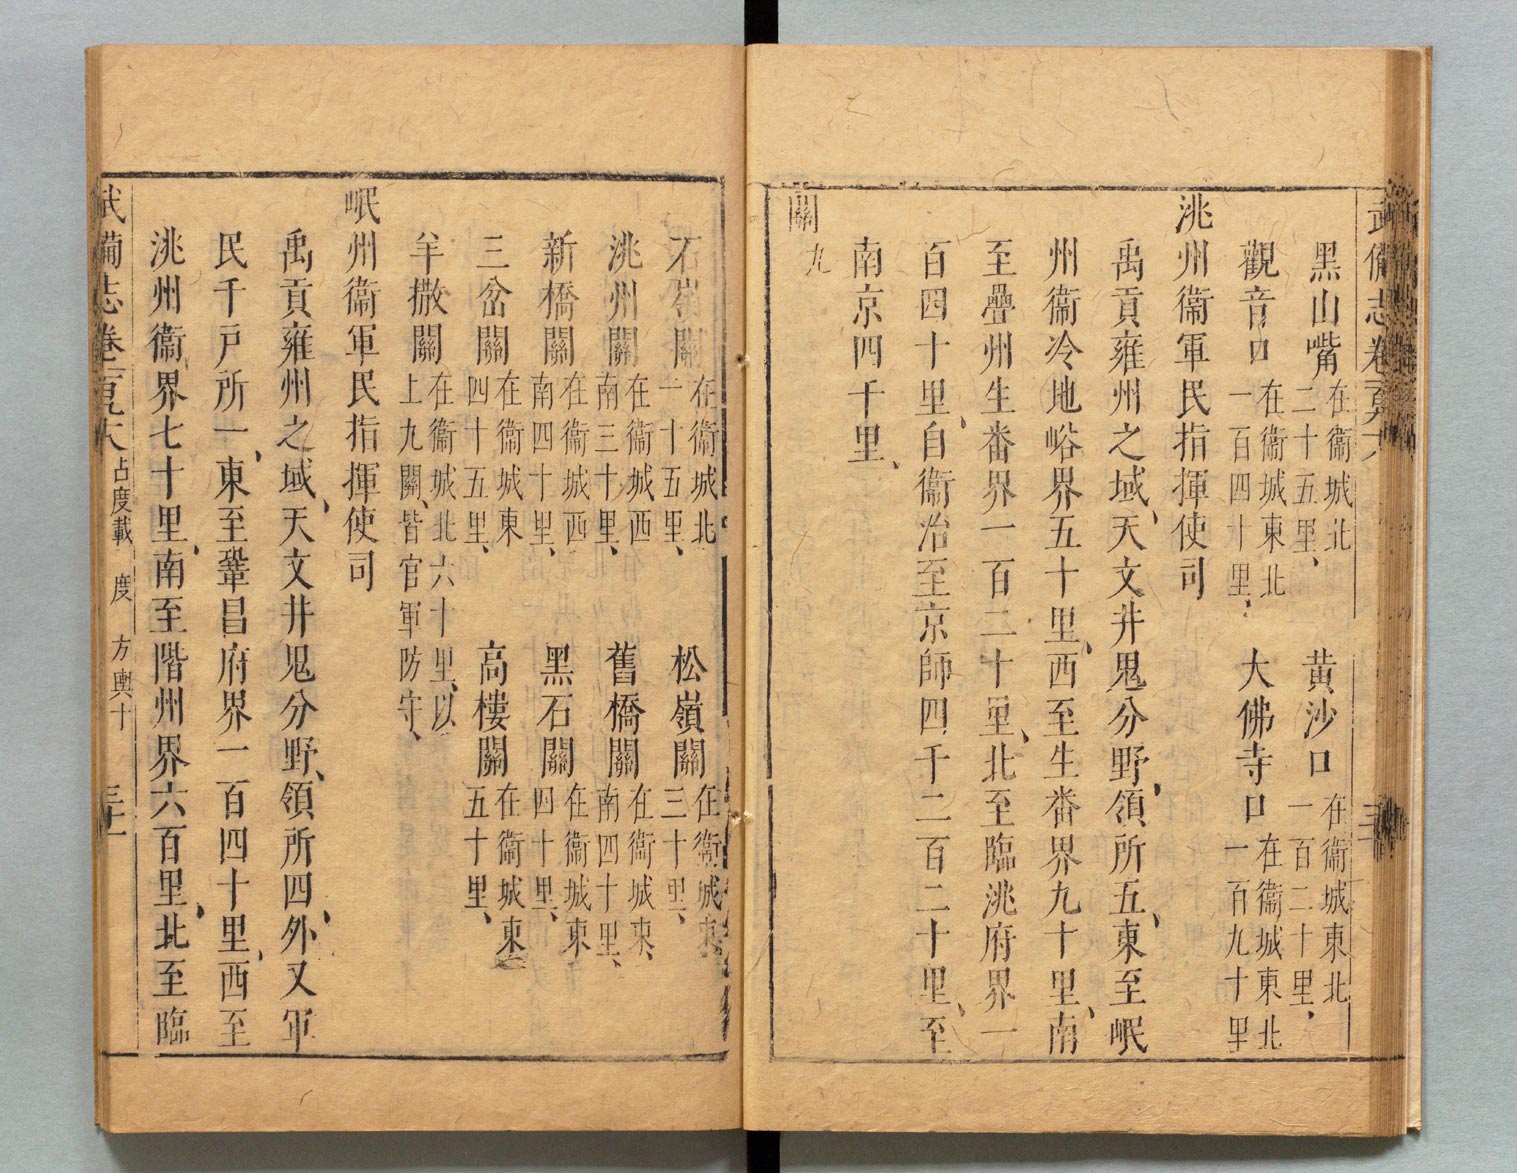 黑山嘴在衞城北二十五里、 黃沙口在衞城東北一百二十里、
觀音口在衞城東北一百四十里、 大佛寺口在衞城東北一百九十里
洮州衞軍民指揮使司
禹貢雍州之域、天文井鬼分野、領所五、東至岷
州衞冷地峪界五十里、西至生番界九十里、南
至疊州生番界一百二十里、北至臨洮府界一
百四十里、自衞治至京師四千二百二十里、至
南京四千里、
關九
石嶺關在衞城北一十五里、 松嶺關在衞城東三十里、
洮州關在衞城西南三十里、 舊橋關在衞城東南四十里、
新橋關在衞城西南四十里、 黑石關在衞城東四十里、
三岔關在衞城東四十五里、 高樓關在衞城東五十里、
羊撒關在衞城北六十里、以上九關、皆官軍防守、
岷州衞軍民指揮使司
禹貢雍州之域、天文井鬼分野、領所四、外又軍
民千戶所一、東至鞏昌府界一百四十里、西至
洮州衞界七十里、南至階州界六百里、北至臨
武備志卷 占度載 度 方輿十